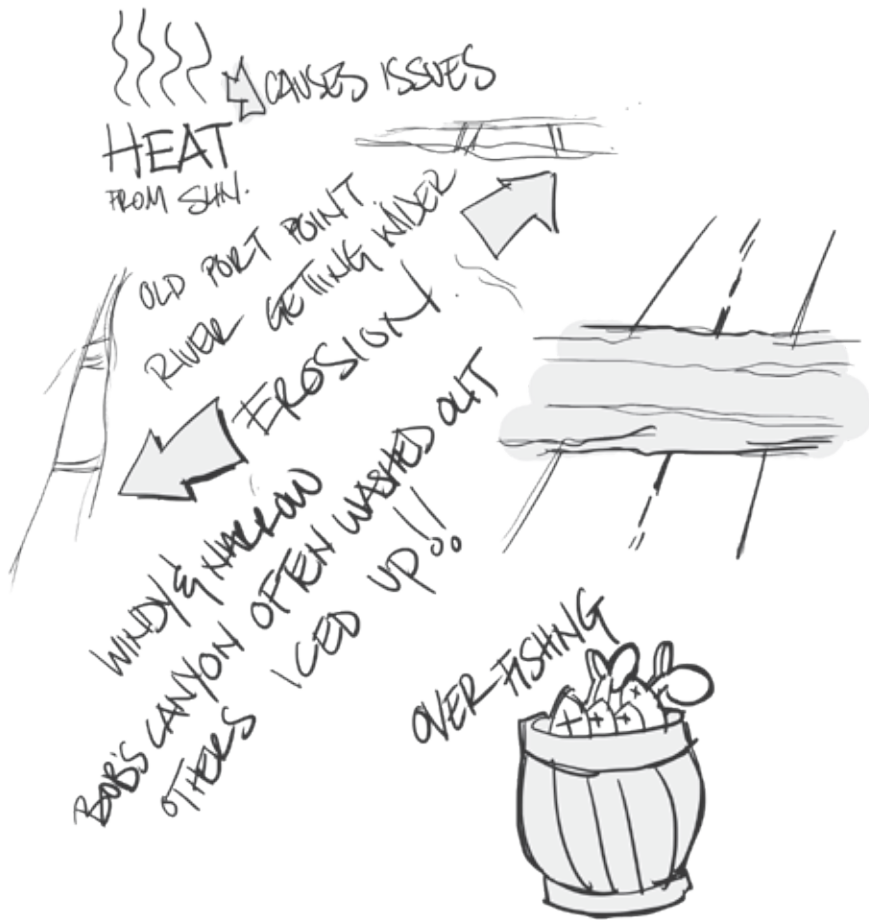 CAUSES ISSUES
HEAT
FROM SUN.
OLD PORT POINT.
RIVER GETTING WIDER
EROSION.
WINDY & NARROW
BOB'S CANYON OFTEN WASHED OUT
OTHERS ICED UP!!
OVER FISHING